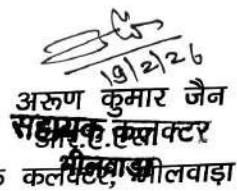 19/2/26
अरुण कुमार जैन
सहायक कलक्टर
भीलवाड़ा
क कलक्टर, भीलवाड़ा